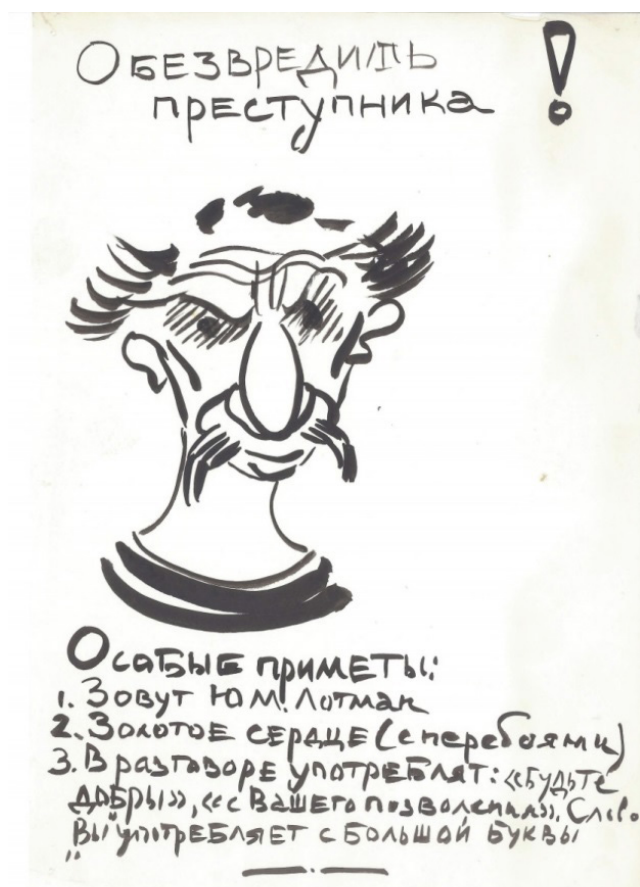 Обезвредить !
преступника
Особые приметы:
1. Зовут Ю.М. Лотман
2. Золотое сердце (с перебоями)
3. В разговоре употреблят: «будьте
добры», «с Вашего позволения». Слово
„Вы" употребляет с большой буквы